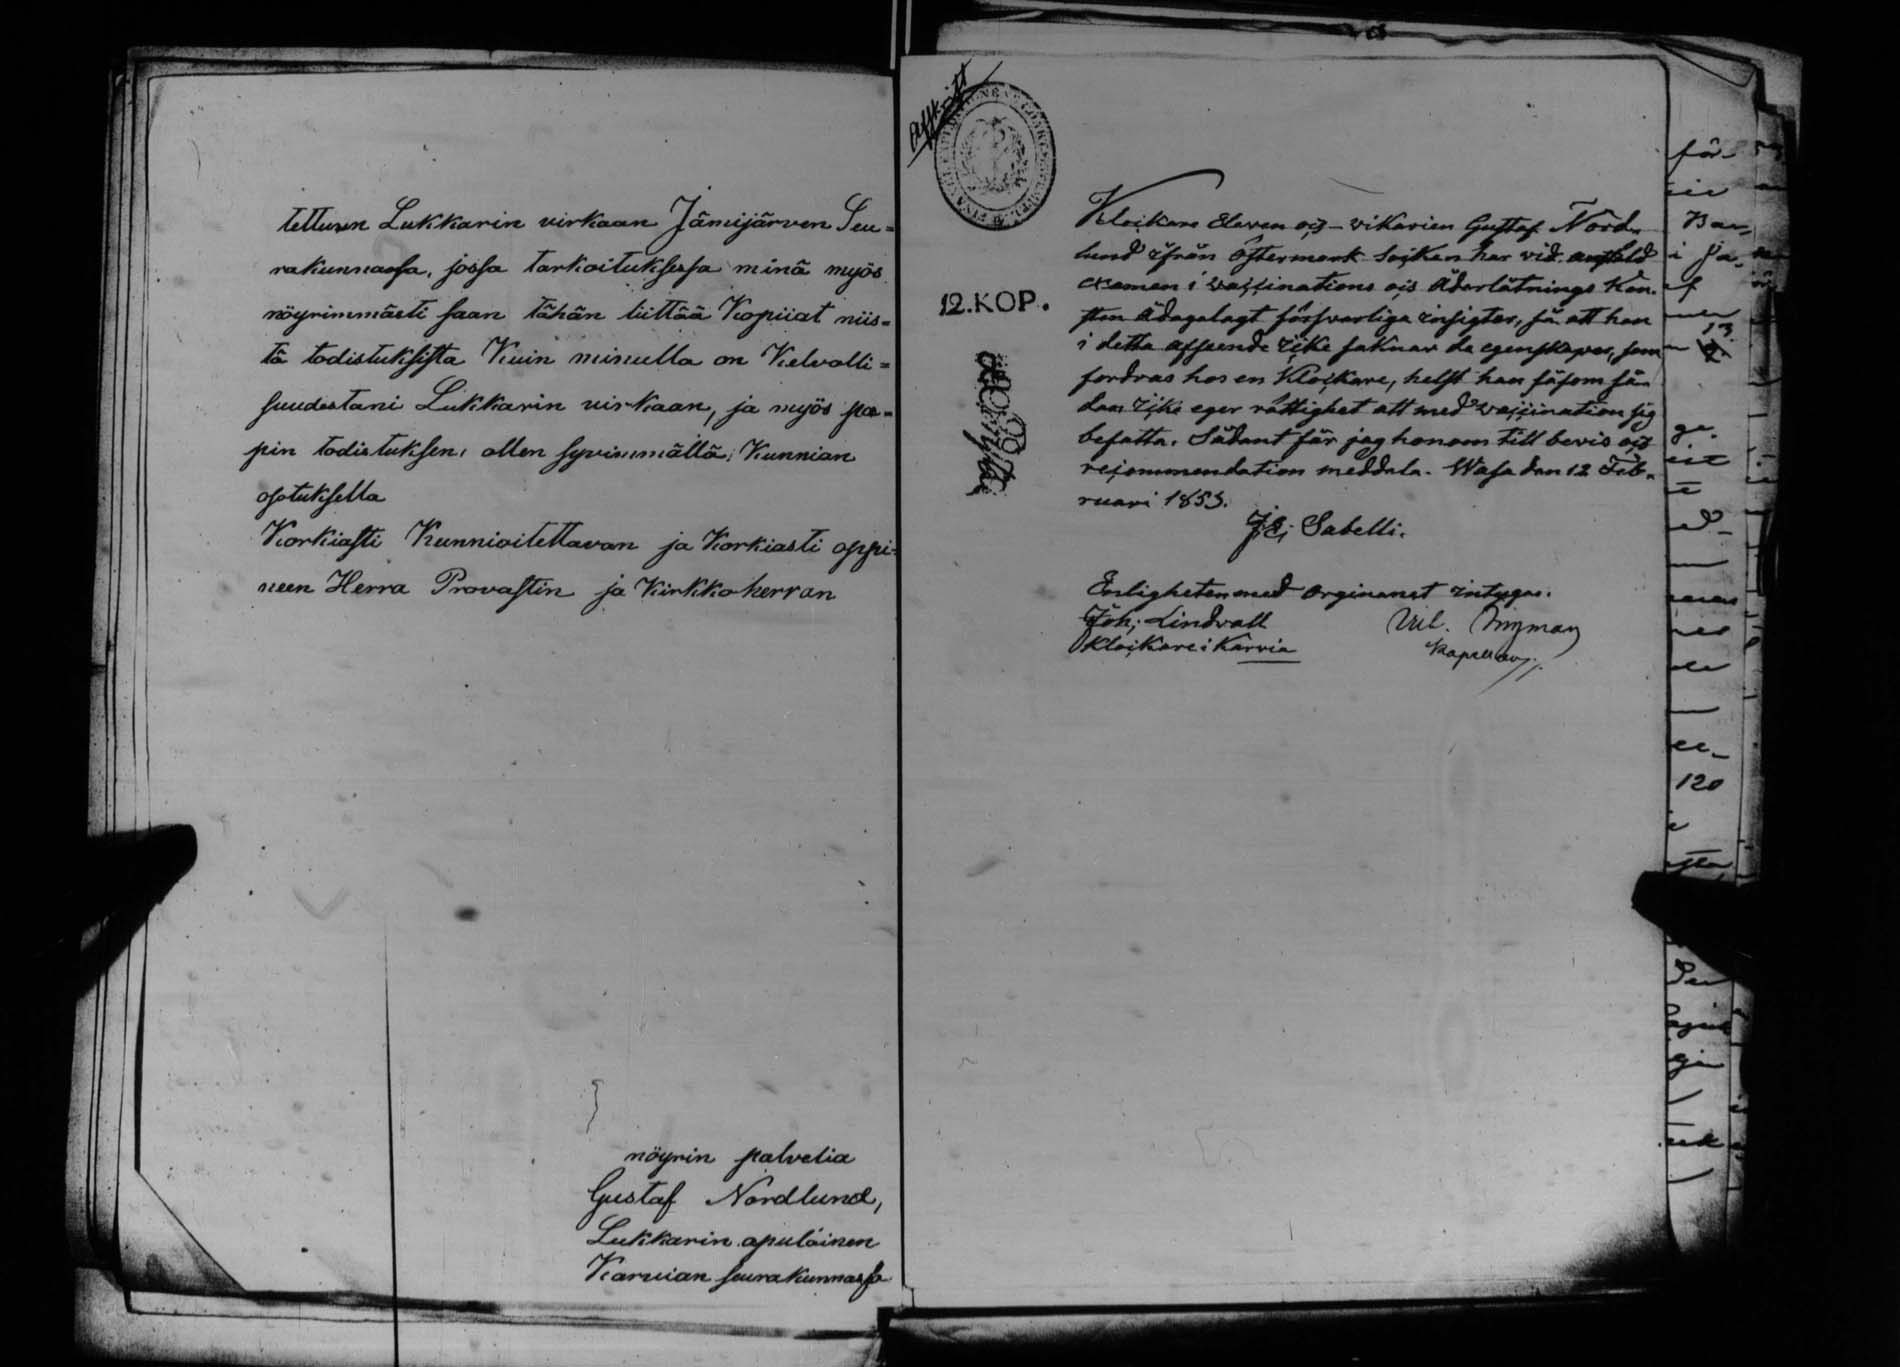 tettuun Lukkarin virkaan Jämijärven Seu=
rakunnassa, jossa tarkoituksessa minä myös
nöyrimmästi saan tähän liittää Kopiiat niis=
tä todistuksista Kuin minulla on Kelvolli=
suudestani Lukkarin virkaan, ja myös pa=
pin todistuksen, ollen syvimmällä Kunnian
osotuksella
Korkiasti Kunnioitettavan ja Korkiasti oppi=
neen Herra Provastin ja Kirkkoherran
nöyrin palvelia
Gustaf Nordlund,
Lukkarin apulainen
Karvian seurakunnassa
Afskrift
12.KOP.
Klockare Eleven och vikarien Gustaf Nord-
lund ifrån Östermark Socken har vid anstäld
examen i vaccinations och Åderlåtnings Kon-
sten Ådagalagt försvarliga insigter, så att han
i detta afseende icke saknar de egenskaper, som
fordras hos en Klockare, helst han såsom så-
dan icke eger rättighet att med vaccination sig
befatta. Sådant får jag honom till bevis och
recommendation meddela. Wasa den 12 Feb-
ruari 1853.
Sabelli.
Enligheten med orginanet intygar.
Joh. Lindvall
Klockare i Karvia
för
i
120